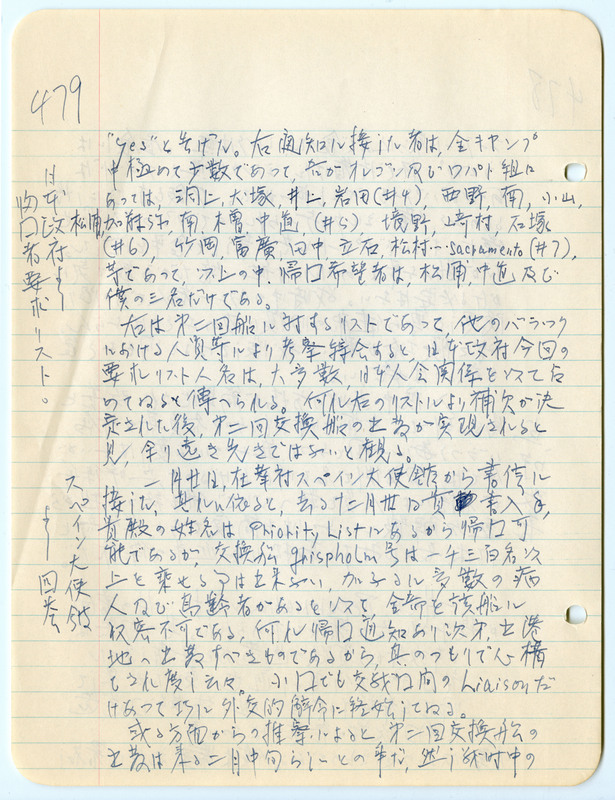 479
"Yes"と告げた。右通知に接した者は、全キャンプ
中極めて少数であって、吾がオレゴン及びワパト組に
あっては、洞上、大塚、井上、岩田(#4)、西野、南、小山、
松浦、加藤、南、木曽、中道、(#5)、境野、崎村、石塚
(#6)、竹岡、富廣、田中、立石、松村…Sacramento(#7)、
等であって、以上の中、帰国希望者は、松浦、中道及び
僕の三名だけである。
右は第二回船に対するリストであって、他のバラック
における人員等により考察綜合すると、日本政府今回の
要求リスト人名は、大多数、日本人会関係を以て占
めてゐると傳へられる。何れ右のリストにより補欠が決
定された後、第二回交換船の出発が実現されると
見、余り遠き先きではないと観る。
一月廿日、在華府スペイン大使館から書信に
接した、其れに依ると、去る十二月廿日貴書入手、
貴殿の姓名は Priority Listにあるから帰国可
能であるが、交換船 Gripsholm号は一千三百名以
上を乗せる事は出来ない、加ふるに多数の病
人及び高齢者があるを以て、全部を該船に
収容不可である、何れ帰国通知あり次第、出港
地へ出発すべきものであるから、其のつもりで心構
せられ度し云々。小国でも交戦国間のLiaisonだ
けあって巧に外交的辞令に終始してゐる。
或る方面からの推察によると、第二回交換船の
出発は来る二月中旬らしいとの事だ、然し戦時中の
日本政府より
帰国者要求リスト。
スペイン大使館
より回答